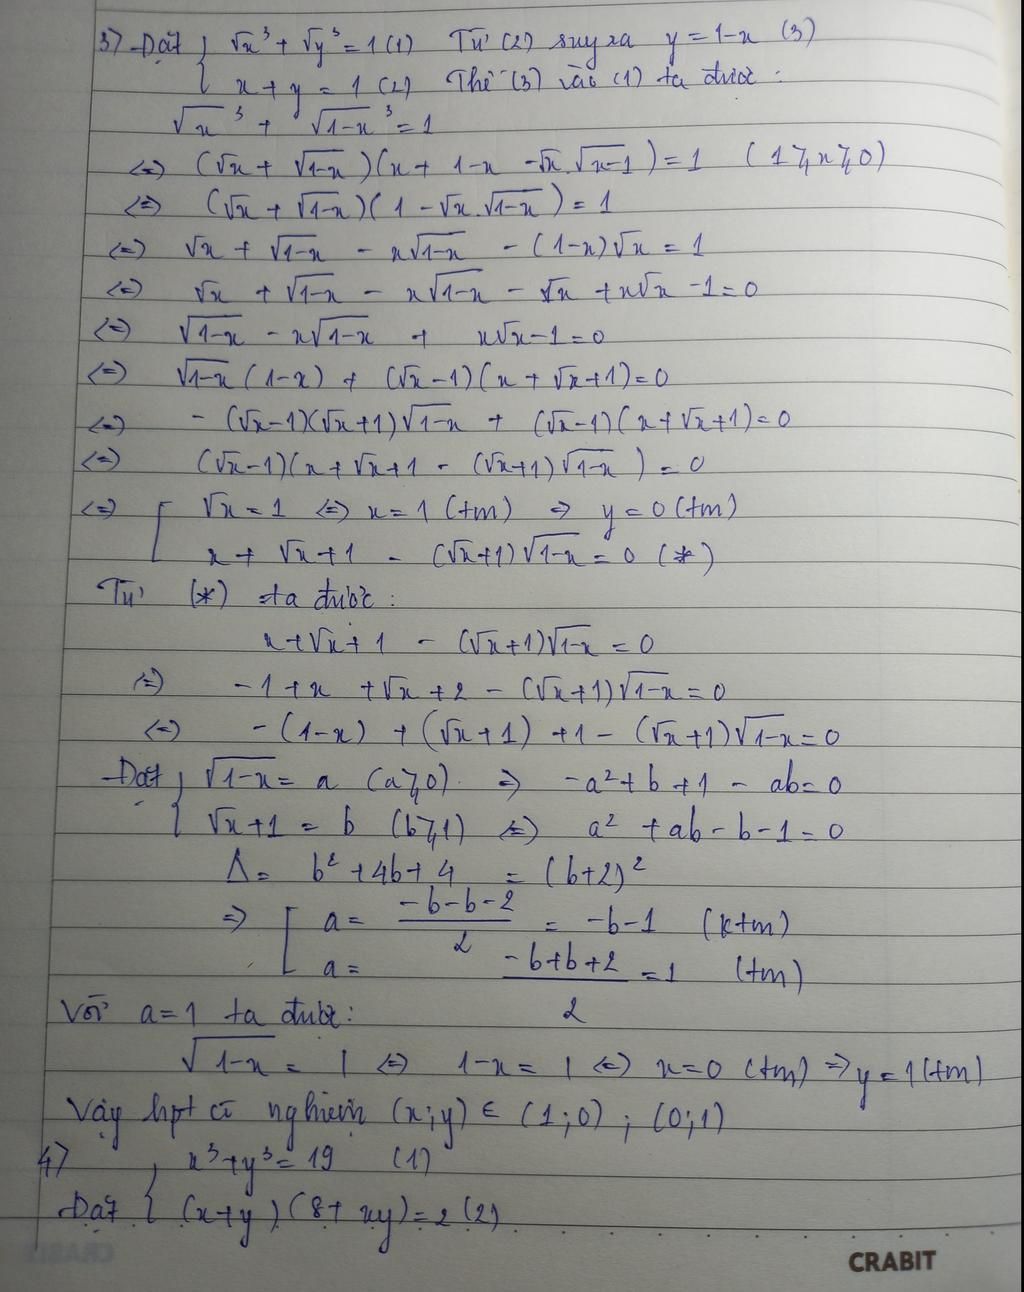 3) Đặt { √x³ + √y³ = 1 (1) Từ (2) suy ra y = 1-x (3)
x + y = 1 (2) Thế (3) vào (1) ta được :
√x³ + √1-x³ = 1
<=> (√x + √1-x)(x + 1-x - √x.√x-1) = 1 (1 ≥ x ≥ 0)
<=> (√x + √1-x)(1 - √x.√1-x) = 1
<=> √x + √1-x - x√1-x - (1-x)√x = 1
<=> √x + √1-x - x√1-x - √x + x√x - 1 = 0
<=> √1-x - x√1-x + x√x - 1 = 0
<=> √1-x (1-x) + (√x-1)(x + √x+1) = 0
<=> - (√x-1)(√x+1)√1-x + (√x-1)(x+√x+1) = 0
<=> (√x-1)(x + √x+1 - (√x+1)√1-x) = 0
<=> [ √x = 1 <=> x = 1 (tm) => y = 0 (tm)
x + √x+1 - (√x+1)√1-x = 0 (*)
Từ (*) ta được :
x+√x+1 - (√x+1)√1-x = 0
<=> -1 + x + √x + 2 - (√x+1)√1-x = 0
<=> - (1-x) + (√x+1) + 1 - (√x+1)√1-x = 0
Đặt { √1-x = a (a ≥ 0) => -a² + b + 1 - ab = 0
√x+1 = b (b ≥ 1) <=> a² + ab - b - 1 = 0
Δ = b² + 4b + 4 = (b+2)²
=> [ a = -b-b-2 / 2 = -b-1 (ktm)
a = -b+b+2 / 2 = 1 (tm)
Với a = 1 ta được :
√1-x = 1 <=> 1-x = 1 <=> x = 0 (tm) => y = 1 (tm)
Vậy hpt có nghiệm (x;y) ∈ (1;0) ; (0;1)
4) x³ + y³ = 19 (1)
Đặt { (x+y)(8+xy) = 2 (2)
CRABIT